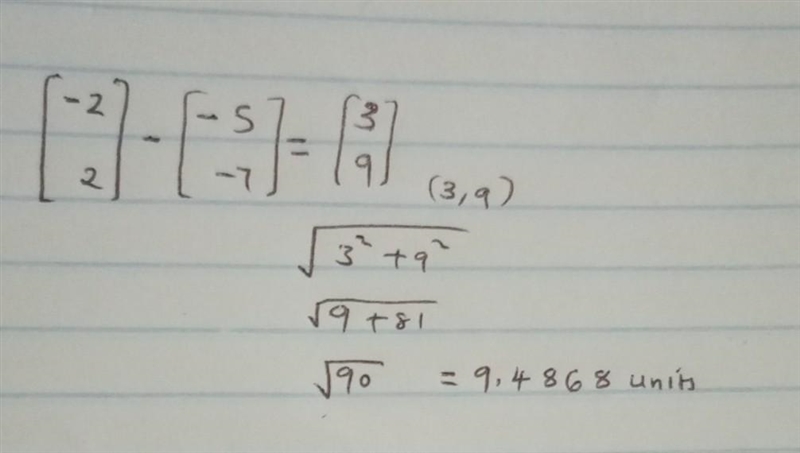 [-2 2] - [-5 -7] = [3 9]
(3,9)
√3² + 9²
√9 + 81
√90 = 9.4868 units